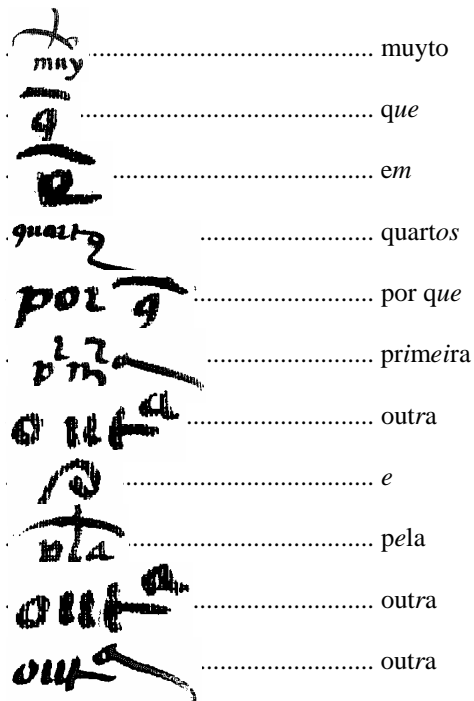 muy ........ muyto
q̄ ........ que
ē ........ em
quart ........ quartos
por q̄ ........ por que
pimra ........ primeira
outa ........ outra
e ........ e
pla ........ pela
outa ........ outra
outa ........ outra